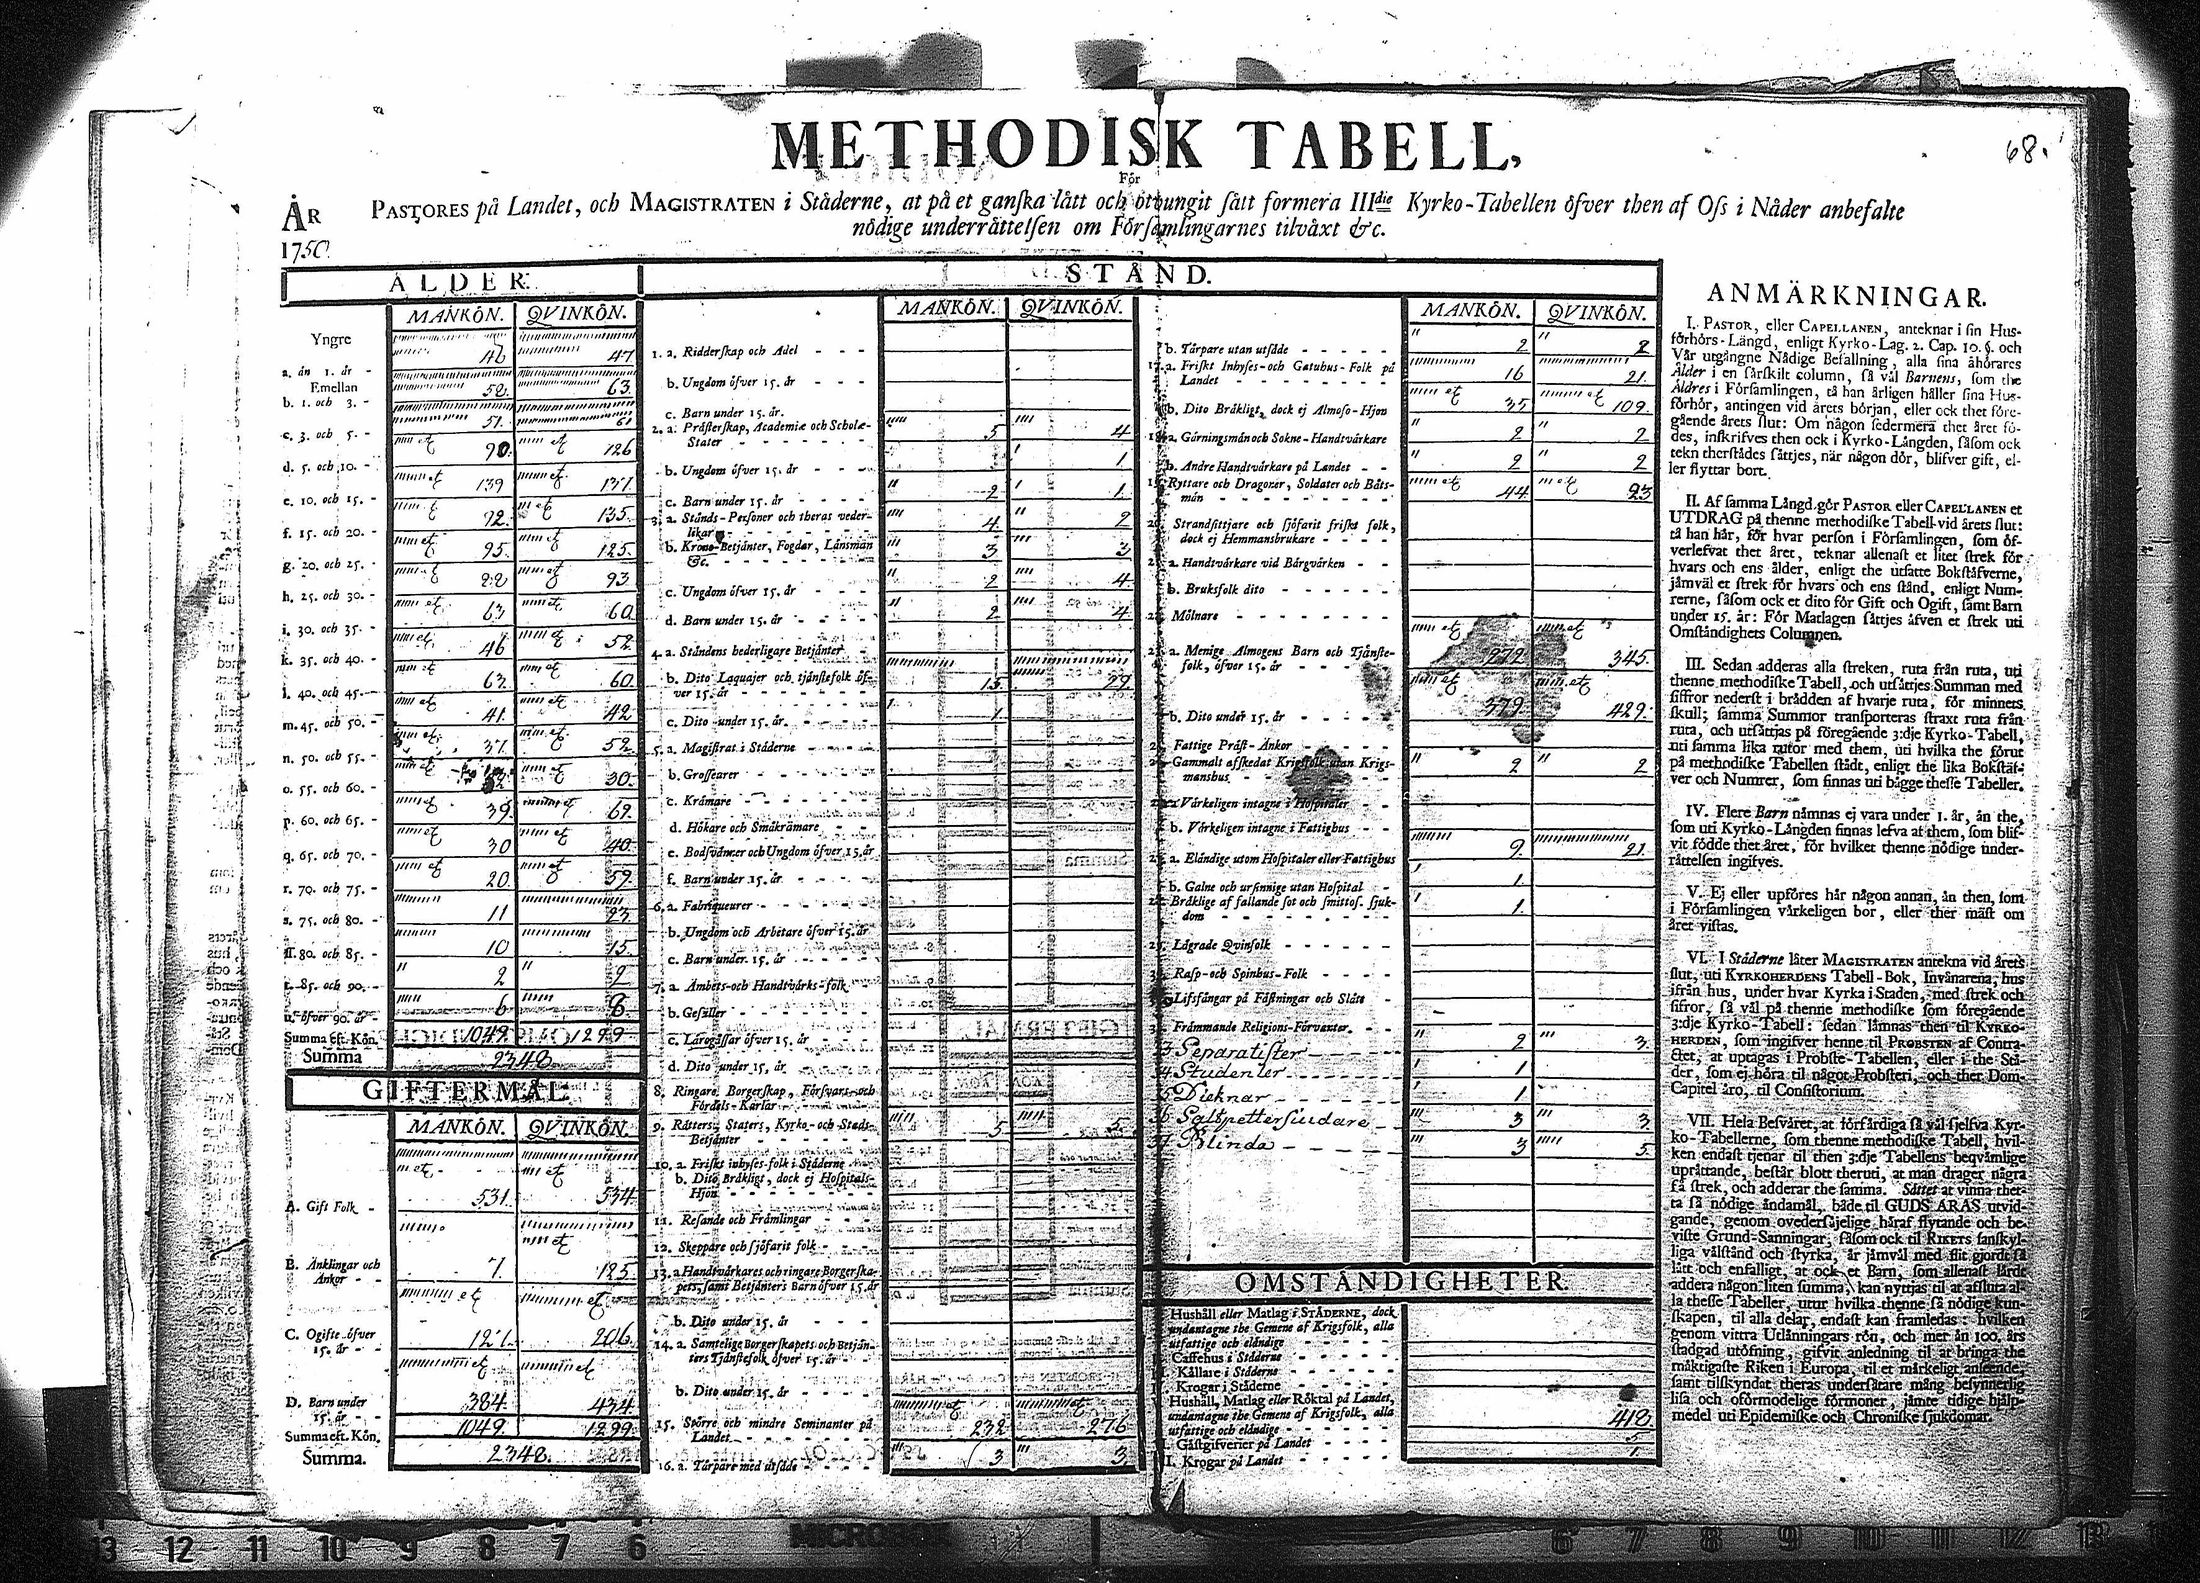 68.
METHODISK TABELL,
För
ÅR PASTORES på Landet, och MAGISTRATEN i Städerne, at på et ganska lätt och otvungit sätt formera IIIdie Kyrko-Tabellen öfver then af Oss i Nåder anbefalte
1750. nödige underrättelsen om Församlingarnes tilväxt &c.
ÅLDER.
MANKÖN. QVINKÖN.
Yngre
a. än 1. år - 46 47
Emellan
b. 1. och 3. - 52. 63.
c. 3. och 5. - 51. 61
d. 5. och 10. - 90. 126
e. 10. och 15. - 139 137
f. 15. och 20. - 92. 135.
g. 20. och 25. - 95. 125.
h. 25. och 30. - 93
i. 30. och 35. - 63 60
k. 35. och 40. - 46 52
l. 40. och 45. - 63. 60
m. 45. och 50. - 41. 42
n. 50. och 55. - 37. 52
o. 55. och 60. - 30.
p. 60. och 65. - 39. 69.
q. 65. och 70. - 30 40.
r. 70. och 75. - 20 59.
s. 75. och 80. - 11 23
ſſ. 80. och 85. - 10 15.
t. 85. och 90. - 2 2
u. öfver 90. år - 6 8
Summa eft. Kön. 1049. 1299
Summa 2348.
GIFTERMÅL
MANKÖN. QVINKÖN.
A. Gift Folk - 531. 534.
B. Änklingar och
Änkor - - 7. 125.
C. Ogifte öfver
15. år - - 127. 206.
D. Barn under
15. år - - 384. 434.
Summa eft. Kön. 1049. 1299.
Summa. 2348.
STÅND.
MANKÖN. QVINKÖN.
1. a. Ridderskap och Adel - - -
b. Ungdom öfver 15. år - - -
c. Barn under 15. år.
2. a. Prästerskap, Academiæ och Scholæ-
Stater - - - 5 4
b. Ungdom öfver 15. år - - 1
c. Barn under 15. år - - 2 1
3. a. Stånds-Personer och theras veder-
likar - - - 4. 2
b. Krono-Betjänter, Fogdar, Länsmän
&c. - - - 3 3
c. Ungdom öfver 15. år - - 2 4
d. Barn under 15. år - - 2 4
4. a. Ståndens hederligare Betjänter -
b. Dito Laquajer och tjänstefolk öf-
ver 15. år - - - 15. 22
c. Dito under 15. år. - - 1.
5. a. Magistrat i Städerne - - -
b. Grossearer - - -
c. Krämare - - -
d. Hökare och Småkrämare - -
e. Bodsvänner och Ungdom öfver 15. år
f. Barn under 15. år. - - -
6. a. Fabriqueurer - - -
b. Ungdom och Arbetare öfver 15. år
c. Barn under 15. år. - - -
7. a. Ämbets-och Handtvärks-folk
b. Gesäller - - -
c. Lärogåssar öfver 15. år - -
d. Dito under 15. år - - -
8. Ringare Borgerskap, Försvars-och
Fördels-Karlar - - -
9. Rätters, Staters, Kyrko-och Stads-
Betjänter - - - 5 5.
10. a. Friskt inhyses-folk i Städerne - -
b. Dito Bräkligt, dock ej Hospitals-
Hjon - - -
11. Resande och Främlingar - - -
12. Skeppare och sjöfarit folk - - -
13. a. Handtvärkares och ringare Borgerska-
pets, samt Betjänters Barn öfver 15. år
b. Dito under 15. år - - -
14. a. Samtelige Borgerskapets och Betjän-
ters Tjänstefolk öfver 15. år - -
b. Dito under 15. år - - -
15. Större och mindre Seminanter på
Landet - - - 232 276
16. a. Tårpare med utsäde - - 3 3
MANKÖN. QVINKÖN.
b. Tårpare utan utsäde - - - 2 2
17. a. Friskt Inhyses-och Gatuhus-Folk på
Landet - - - 16 21.
b. Dito Bräkligt, dock ej Almoso-Hjon 35 109.
18. a. Gärningsmän och Sokne-Handtvärkare 2 2
b. Andre Handtvärkare på Landet - - 2 2
Ryttare och Dragoner, Soldater och Båts-
män - - - 44. 23
20. Strandsittjare och sjöfarit friskt folk,
dock ej Hemmansbrukare - - -
a. Handtvärkare vid Bärgvärken - -
b. Bruksfolk dito - - -
Mölnare - - -
a. Menige Almogens Barn och Tjänste-
folk, öfver 15. år - - - 272. 345.
b. Dito under 15. år - - - 379. 429.
Fattige Präst-Änkor - - -
Gammalt afskedat Krigsfolk utan Krigs-
manshus - - - 2 2
Värkeligen intagne i Hospitaler - -
b. Värkeligen intagne i Fattighus - -
a. Eländige utom Hospitaler eller Fattighus 9. 21.
b. Galne och ursinnige utan Hospital - 1.
Bräklige af fallande sot och smittos. sjuk-
dom - - - 1.
Lägrade Qvinfolk - - -
Rasp-och Spinhus-Folk - - -
Lifsfångar på Fästningar och Slått -
Främmande Religions-Förvanter. - - 2 3.
Separatister - - 1 1
Studenter - - 1
Dieknar - - 1
Saltpettersiudare - 3 3
Blinda - - 3 5.
OMSTÄNDIGHETER
Hushåll eller Matlag i STÄDERNE, dock
undantagne the Gemene af Krigsfolk, alla
utfattige och eländige
Caffehus i Städerne - - -
Källare i Städerne - - -
Krogar i Städerne - - -
Hushåll, Matlag eller Röktal på Landet,
undantagne the Gemene af Krigsfolk, alla
utfattige och eländige - - - 418.
Gästgifverier på Landet - - - 5
I. Krogar på Landet - - - 1.
ANMÄRKNINGAR.
I. PASTOR, eller CAPELLANEN, antecknar i sin Hus-
förhörs-Längd, enligt Kyrko-Lag. 2. Cap. 10. §. och
Vår utgångne Nådige Befallning, alla sina åhörares
Ålder i en särskilt column, så väl Barnens, som the
Äldres i Församlingen, tå han årligen håller sina Hus-
förhör, antingen vid årets början, eller ock thet före-
gående årets slut: Om någon sedermera thet året fö-
des, inskrifves then ock i Kyrko-Längden, såsom ock
tekn therstädes sättjes, när någon dör, blifver gift, el-
ler flyttar bort.
II. Af samma Längd gör PASTOR eller CAPELLANEN et
UTDRAG på thenne methodiske Tabell vid årets slut:
tå han här, för hvar person i Församlingen, som öf-
verlefvat thet året, teknar allenast et litet strek för
hvars och ens ålder, enligt the utsatte Bokstäfverne,
jämväl et strek för hvars och ens stånd, enligt Num-
rerne, såsom ock et dito för Gift och Ogift, samt Barn
under 15. år: För Matlagen sättjes äfven et strek uti
Omständighets Columnen.
III. Sedan adderas alla streken, ruta från ruta, uti
thenne methodiske Tabell, och utsättjes Summan med
siffror nederst i brädden af hvarje ruta, för minnets
skull; samma Summor transporteras straxt ruta från
ruta, och utsättjas på föregående 3:dje Kyrko-Tabell,
uti samma lika rutor med them, uti hvilka the förut
på methodiske Tabellen stådt, enligt the lika Bokstäf-
ver och Numrer, som finnas uti bägge thesse Tabeller.
IV. Flere Barn nämnas ej vara under 1. år, än the,
som uti Kyrko-Längden finnas lefva af them, som blif-
vit födde thet året, för hvilket thenne nödige under-
rättelsen ingifves.
V. Ej eller upföres här någon annan, än then, som
i Församlingen värkeligen bor, eller ther mäst om
året vistas.
VI. I Städerne låter MAGISTRATEN anteckna vid årets
slut, uti KYRKOHERDENS Tabell-Bok, Invånarena, hus
ifrån hus, under hvar Kyrka i Staden, med strek och
siffror, så väl på thenne methodiske som föregående
3:dje Kyrko-Tabell: sedan lämnas then til KYRKO-
HERDEN, som ingifver henne til PROBSTEN af Contra-
ctet, at uptagas i Probste-Tabellen, eller i the Stä-
der, som ej höra til något Probsteri, och ther Dom-
Capitel äro, til Consistorium.
VII. Hela Besväret, at förfärdiga så väl sjelfva Kyr-
ko-Tabellerne, som thenne methodiske Tabell, hvil-
ken endast tjenar til then 3:dje Tabellens beqvämlige
uprättande, består blott theruti, at man drager några
få strek, och adderar the samma. Sättet at vinna thet-
ta så nödige ändamål, både til GUDS ÄRAS utvid-
gande, genom ovedersäjelige häraf flytande och be-
viste Grund-Sanningar, såsom ock til RIKETS sanskyl-
liga välstånd och styrka, är jämväl med flit gjordt så
lätt och enfalligt, at ock et Barn, som allenast lärdt
addera någon liten summa, kan nyttjas til at afsluta al-
la thesse Tabeller, utur hvilka thenne så nödige kun-
skapen, til alla delar, endast kan framledas: hvilken
genom vittra Utlänningars rön, och mer än 100. års
stadgad utöfning, gifvit anledning til at bringa the
mäktigaste Riken i Europa, til et märkeligt anseende,
samt tilskyndat theras undersåtare mång besynnerlig
lisa och oförmodelige förmoner, jämte tidige hjälp-
medel uti Epidemiske och Chroniske sjukdomar.
13 12 11 10 9 8 7 6
6 7 8 9 10 11 12 13